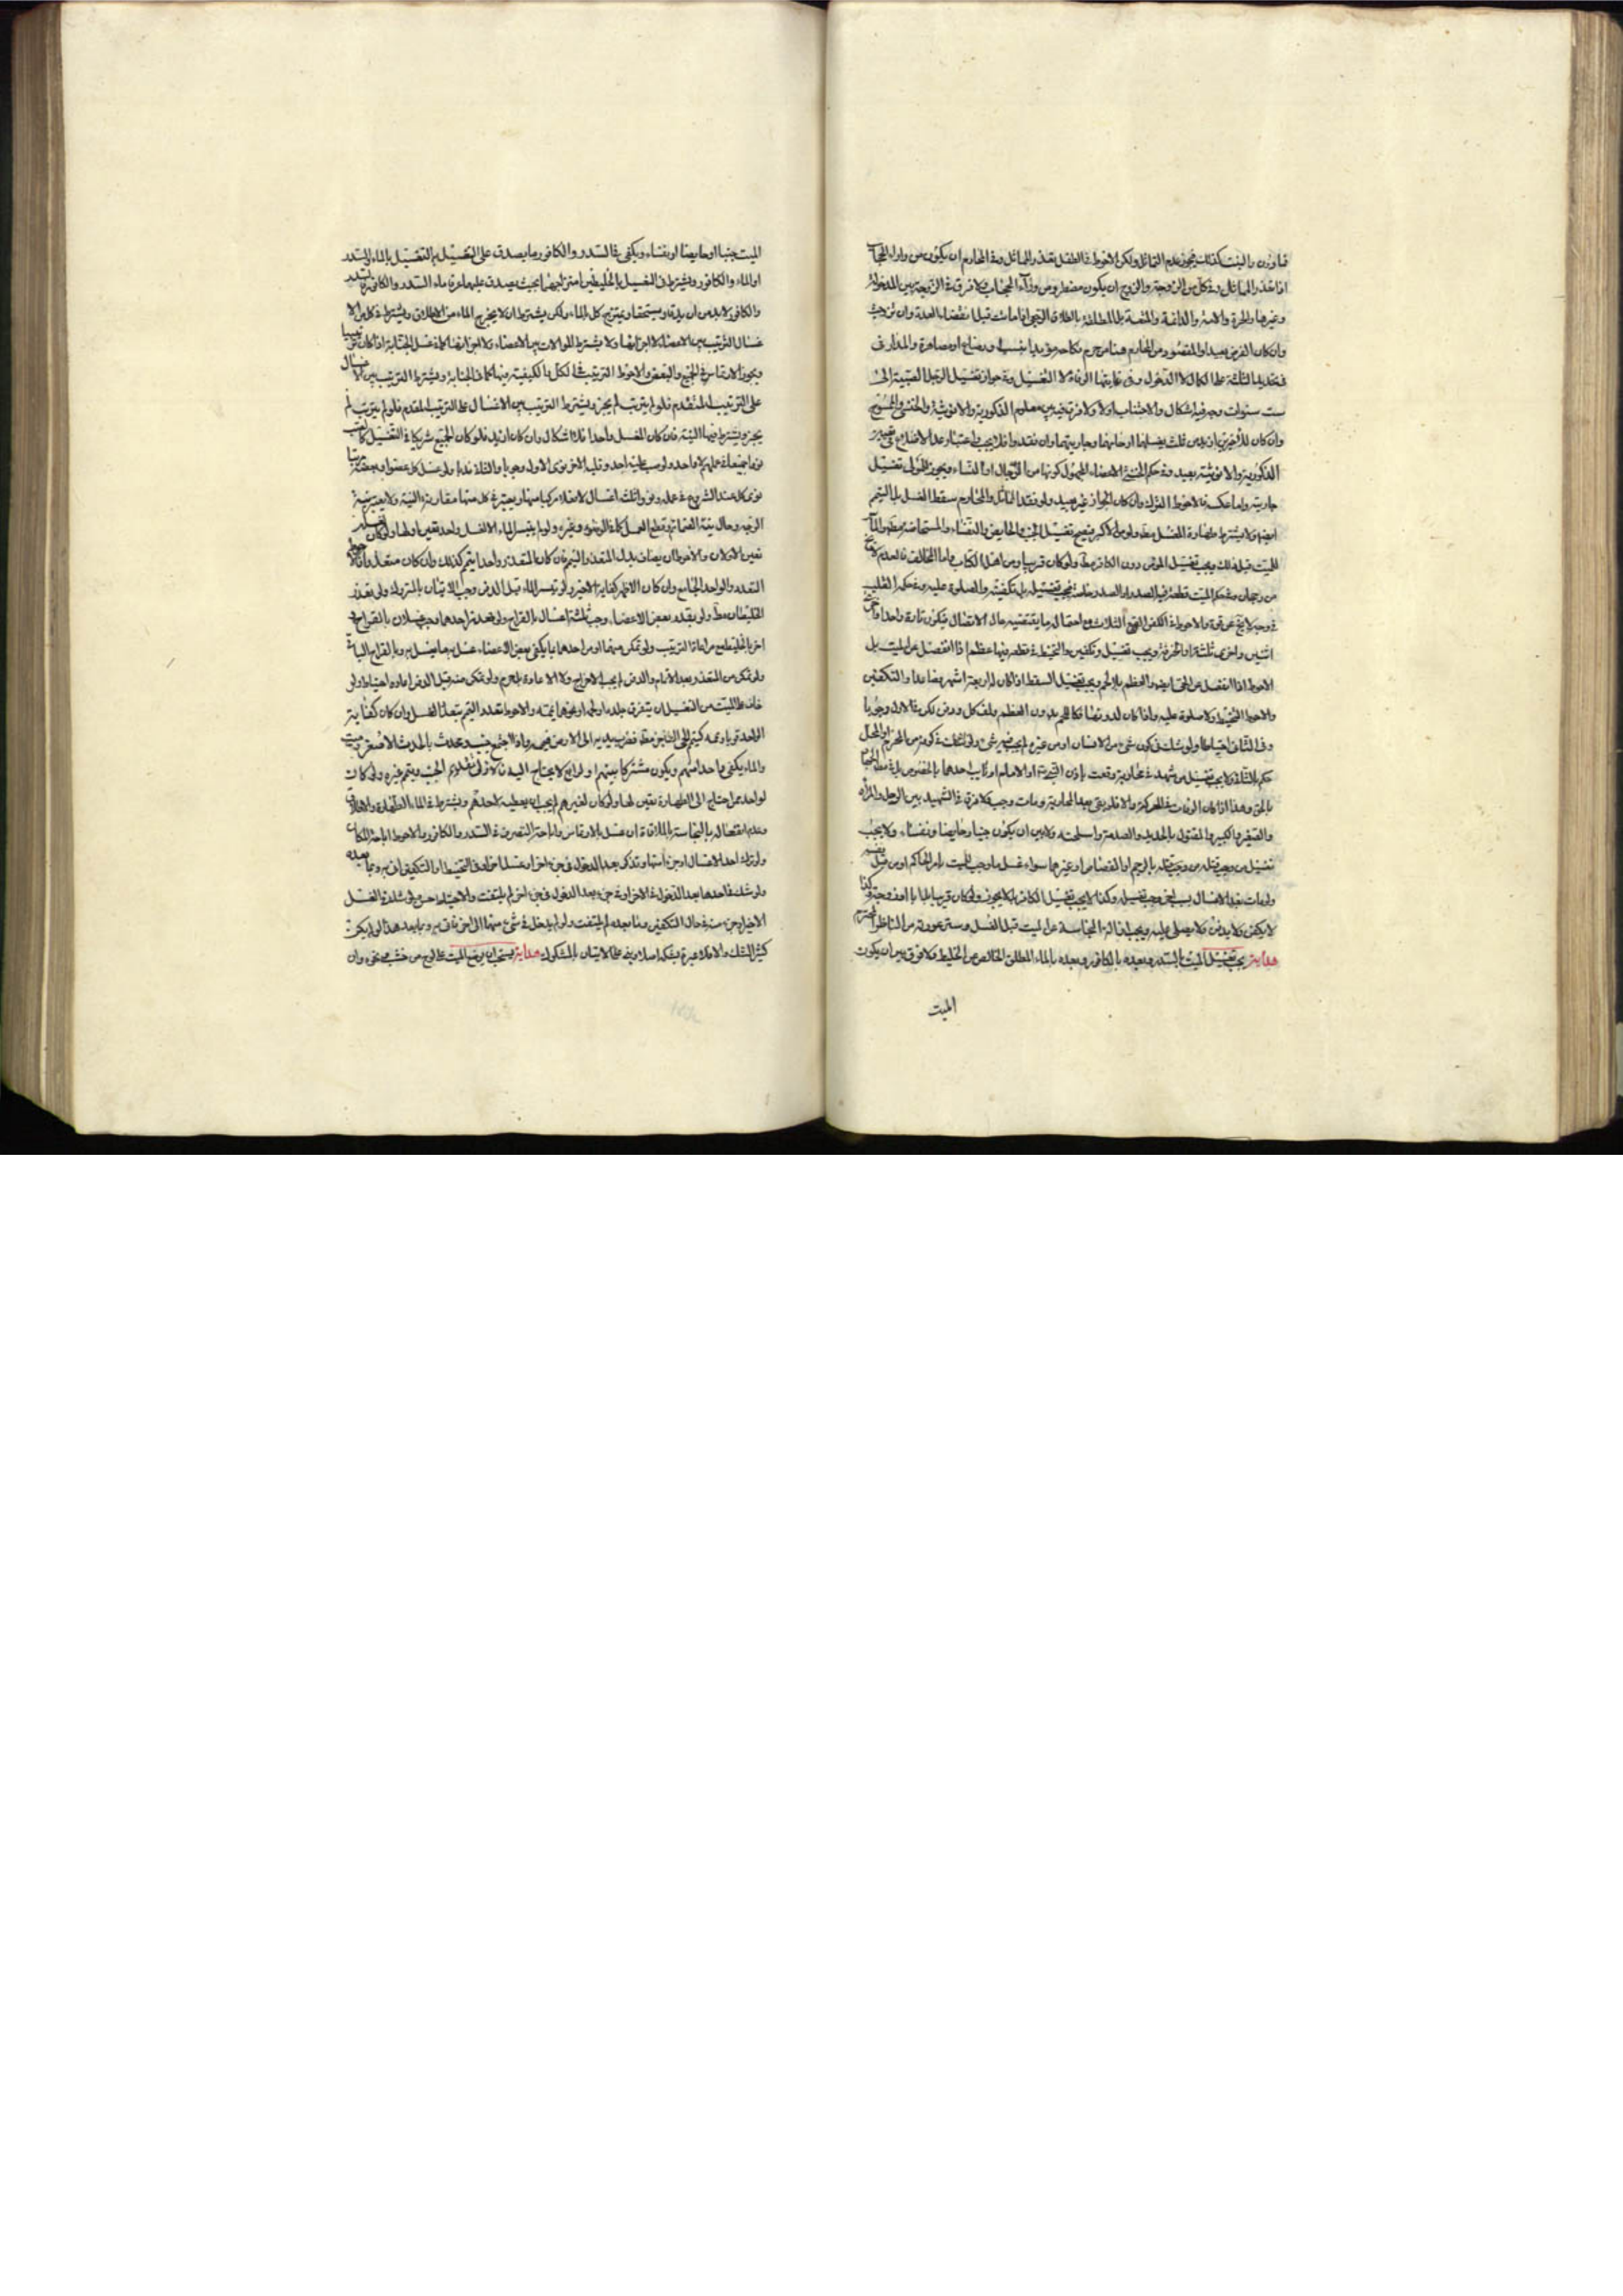 فما دون والبنت كذلك يجوز عدم التماثل ولكن الاحوط في الطفل تعذر المماثل وفي المحارم ان يكون من وراء الحجاب
اذا تعذر المماثل وفي كل من الزوجة والزوج ان يكون مضطر ومن وراء الحجاب ولا فرق في الزوجة بين المدخولة
وغيرها والحرة والامة والدائمة والمتعة بل المطلقة بالطلاق الرجعي اذا ماتت قبل انقضاء العدة وان تزوجت
وان كان الفرض بعيدا والمقصود من المحارم هنا من حرم نكاحه مؤبدا بنسب او رضاع او مصاهرة والمدار في
تحديد الثلثة على الكمال لا الدخول وفي غايتها الوفاة لا التغسيل وفي جواز تغسيل الرجل الصبية الى
ست سنوات وجه فيه اشكال والاجتناب اولى ولا فرق فيه بين معلوم الذكورية والانوثية والخنثى والممسوح
وان كان للأخيرين ازيد من ثلث يغسلهما
الذكورية والانوثية بعيد وفي حكم الخنثى الاعضاء المجهول كونها من الرجال او النساء ويجوز للمولى تغسيل
جاريته واما عكسه فالاحوط الترك وان كان الجواز غير بعيد ولو فقد المماثل والمحارم سقط الغسل بل التيمم
ايضا ولا يشترط طهارة المغسل مطلقا ولو من الاكبر فيصح تغسيل الجنب والحايض والنفساء والمستحاضة
للميت قبل ذلك ويجب تغسيل المؤمن دون الكافر مطلقا ولو كان قريبا او من اهل الكتاب واما المخالف فالعدم لا يخلو
من رجحان وفي حكم الميت قطعة فيها الصدر او الصدر وحده فيجب تغسيله بل تكفينه والصلوة عليه وفي حكمه القلب
في وجه لا يخلو عن قوة والاحوط في الكفن القطع الثلاث مع احتمال ما يقتضيه حال الاتصال فيكون تارة واحدا واخرى
اثنين واخرى ثلثة ويجب تغسيل وتكفين والتحنيط في قطعة فيها عظم اذا انفصل عن الميت بل
الاحوط اذا انفصل عن الحي ايضا والعظم بلا لحم ويجب تغسيل السقط اذا كان له اربعة اشهر فصاعدا والتكفين
والاحوط التحنيط ولا صلوة عليه واذا كان لدون ذلك فكاللحم بدون العظم يلف كل ودفن لكن في الاول وجوبا
وفي الثاني احتياطا ولو شك في كون شيء من الانسان او من غيره لم يجب فيه شيء ولو شك في كونه من المحرم او المحلل
حكم بالثاني ولا يجب تغسيل من شهد في محاربة وقعت باذن النبي او الامام او نايب احدهما بالخصوص
بالحق وهذا اذا كان الوفات في المعركة والا فلو بقي بعد المحاربة ومات وجب ولا فرق في الشهيد بين الرجل والمراة
والصغير والكبير والمقتول بالحديد والصدمة واسلحته ولا بين ان يكون جنبا وحايضا ونفساء ولا يجب
تغسيل من وجب قتله من وجب قتله بالرجم او القصاص او غيرهما سواء غسل ما وجب للميت بامر الحاكم او من قبل نفسه
ولو مات بعد الاغتسال بسبب اخر وجب تغسيله وكذا لا يجب تغسيل الكافر بل لا يجوز ولو كان قريبا
لا يكفن ولا يدفن ولا يصلى عليه ويجب ازالة النجاسة عن الميت قبل الغسل وستر عورته من الناظر المحترم
هداية يجب تغسيل الميت بالسدر وبعده بالكافور وبعده بالماء المطلق الخالص عن الخليط ولا فرق بين ان يكون
الميت
الميت جنبا او حايضا او نفساء ويكفي في السدر والكافور ما يصدق على التغسيل به التغسيل بالماء والسدر
او الماء والكافور ويشترط في التغسيل بالخليطين امتزاجهما بحيث يصدق عليهما عرفا ماء السدر والكافور فالسدر
والكافور لا بد من ان يدق ويستحقا ويمتزج كل الماء ولكن يشترط ان لا يخرج الماء من الاطلاق ويشترط في كل من الا
غسال الترتيب بين الاعضاء لا اجزائها ولا يشترط الموالات بين الاعضاء ولا اجزائها كما في غسل الجنابة اذا كان ترتيبيا
ويجوز الارتماس في الجميع والبعض والاحوط الترتيب في الكل بالكيفية فيها كما في الجنابة ويشترط الترتيب بين الاغسال
على الترتيب المتقدم فلو لم يترتب لم يجز ويشترط الترتيب بين الاغسال على الترتيب المقدم فلو لم يترتب لم
يجز ويشترط فيها النية فان كان المغسل واحدا فلا اشكال وان كان ازيد فلو كان الجميع شريكا في التغسيل
نووا جميعا في عملهم لا واحد ولو صب عليه احد وقلبه الاخر نوى الاول وجوبا والثاني ندبا ولو غسل كل عضوا
نوى كل عند الشروع في عمله ونووا ثلثة اغسال لا غسلا مركبا منها ويعتبر في كل منها مقارنة النية ولا يعتبر نية
الوجه وحال نية الضمائم وقطع العمل كما في الوضوء وغيره ولو لم يتيسر الماء الا لغسل واحد تعين اولها ولو كان لغسلين
تعين الاولان والاحوط ان يضاف بدل المتعذر التيمم فان كان المتعذر واحدا يتمم كذلك وان كان متعددا فالاحوط
التعدد والواحد الجامع وان كان الاظهر كفاية الاخير ولو تيسر الماء قبل الدفن وجب الاتيان بالمتروك ولو تعذر
الخليطان مطلقا ولو بعد بعض الاعضاء وجب ثلثة اغسال بالقراح ولو تعذر احدهما وجب غسلان بالقراح و
اخر بالخليط مع مراعاة الترتيب ولو تمكن منهما او من احدهما ما يكفي بعض الاعضاء غسل به ما يغسل به وبالقراح الباقي
ولو تمكن من المتعذر بعد الاتمام والدفن لم يجب الاخراج ولا الاعادة بل يحرم ولو تمكن منه قبل الدفن اعاده احتياطا ولو
خاف على الميت من التغسيل ان يتفرق جلده او لحمه او نحوهما يممه والاحوط تعدد التيمم بتعدد الغسل وان كان كفاية
الواحد قويا ويممه كتيمم الحي العاجز مطلقا فضرب بيديه الى الارض فيممه ولو اجتمع جنب ومحدث بالحدث الاصغر وميت
والماء يكفي واحدا منهم ويكون مشتركا بينهم او لرابع لا يحتاج اليه فالاولى تقديم الجنب ويتمم غيره ولو كان
لواحد ممن احتاج الى الطهارة تعين لها ولو كان لغيرهم لم يجب ان يعطيه لاحدهم ويشترط في الماء الطهارة والاطلاق
وعدم انفعاله بالنجاسة بالملاقاة ان غسل بالارتماس واباحة التصرف في السدر والكافور والاحوط اباحة المكان
ولو ترك احد الاغسال او جزء منها وتذكر بعد الدخول في جزء اخر او غسل اخر او في التحنيط او التكفين اتى به وبما بعده
ولو شك في احدهما بعد الدخول في الاخر او في جزء بعد الدخول في جزء اخر لم يلتفت والاحتياط حسن ولو شك في الغسل
الاخير او جزء منه في حال التكفين وما بعده لم يلتفت ولو لم يدخل في شيء منهما الى اخر فات به وبما بعده هذا لو لم يكن
كثير الشك والا فلا عبرة بشكه اصلا وبنى على الاتيان بالمشكوك هداية يستحب ان يوضع الميت على لوح من خشب ونحوه وان